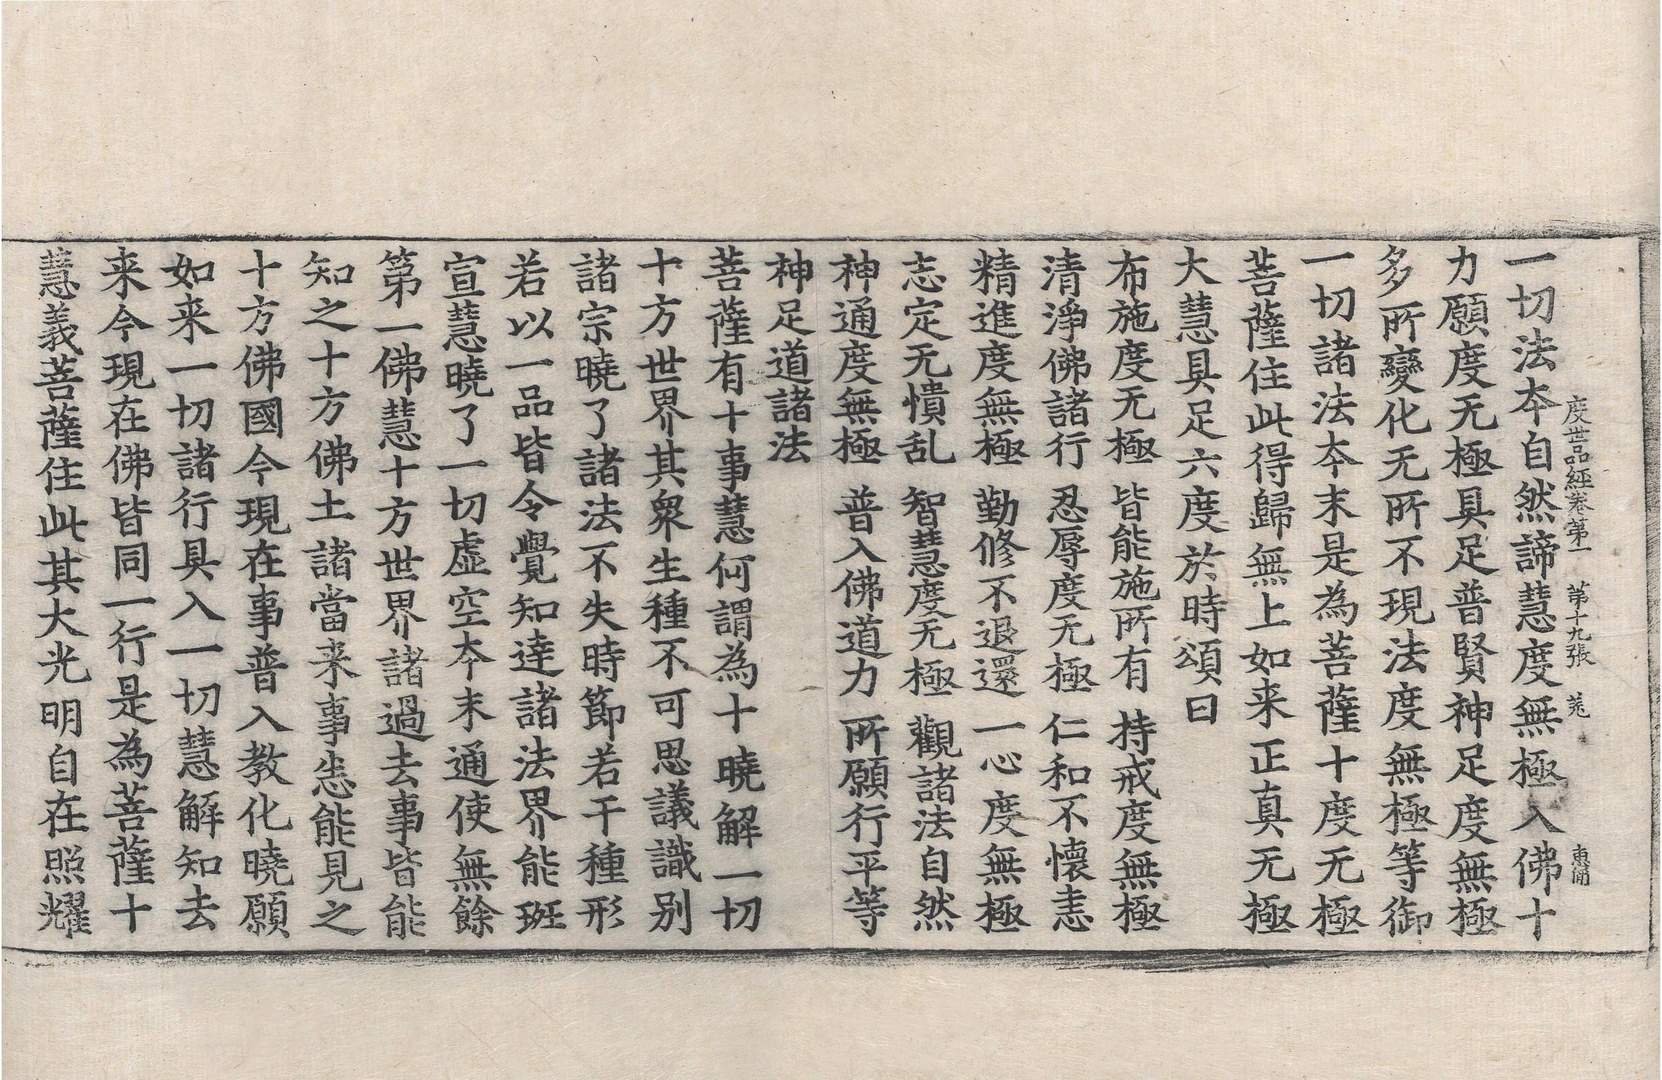 度世品經卷第一　第十九張　菟
一切法夲自然諦慧度無極入佛十
力願度无極具足普賢神足度無極
多所變化无所不現法度無極等御
一切諸法夲末是為菩薩十度无極
菩薩住此得歸無上如来正真无極
大慧具足六度於時頌曰
布施度无極　皆能施所有　持戒度無極
清淨佛諸行　忍辱度无極　仁和不懷恚
精進度無極　勤修不退還　一心度無極
志定无憒乱　智慧度无極　觀諸法自然
神通度無極　普入佛道力　所願行平等
神足道諸法
菩薩有十事慧何謂為十曉解一切
十方世界其衆生種不可思議識別
諸宗曉了諸法不失時節若干種形
若以一品皆令覺知達諸法界能班
宣慧曉了一切虛空夲末通使無餘
第一佛慧十方世界諸過去事皆能
知之十方佛土諸當来事悉能見之
十方佛國今現在事普入教化曉願
如来一切諸行具入一切慧解知去
来今現在佛皆同一行是為菩薩十
慧義菩薩住此其大光明自在照耀